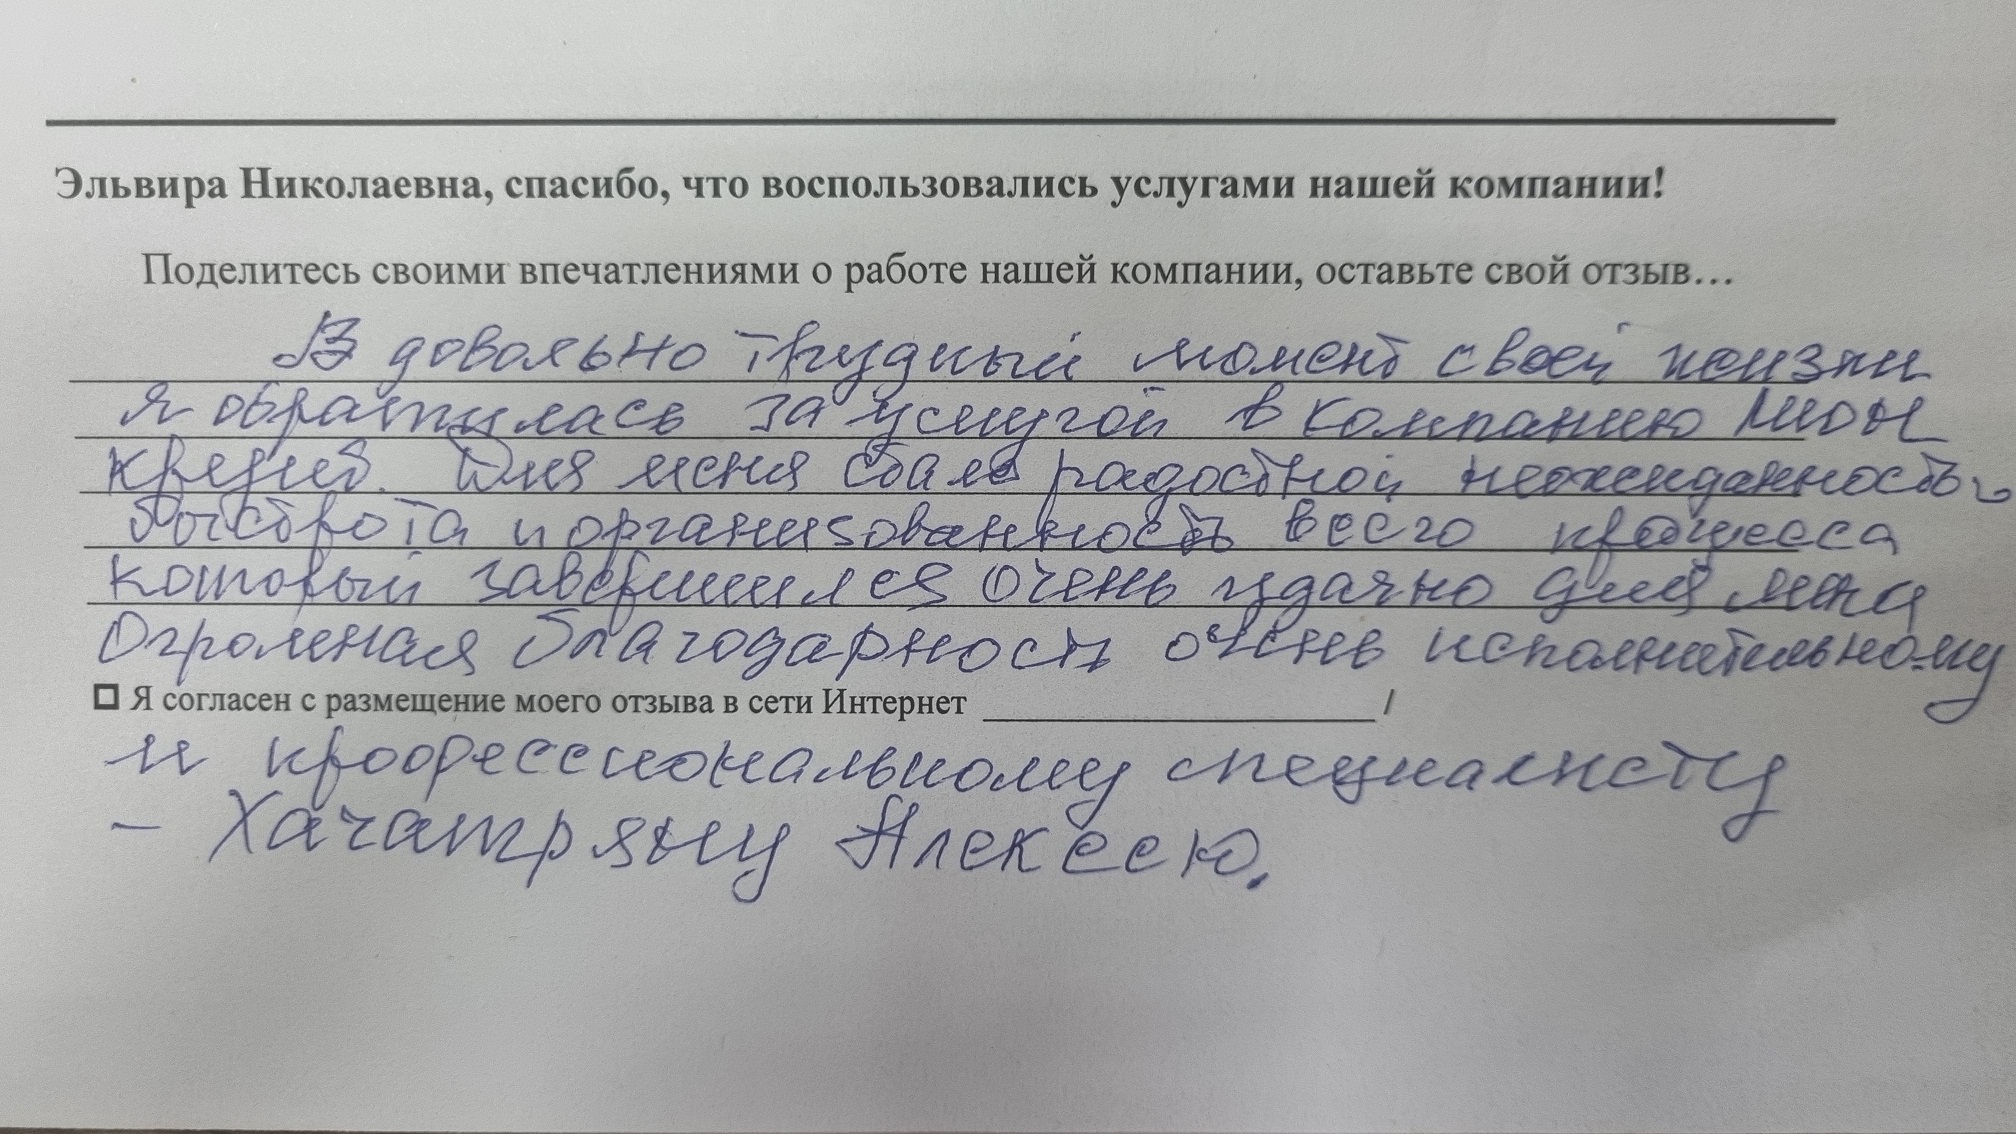 Эльвира Николаевна, спасибо, что воспользовались услугами нашей компании!
Поделитесь своими впечатлениями о работе нашей компании, оставьте свой отзыв...
В довольно трудный момент своей жизни
я обратилась за услугой в компанию
кредит. Для меня стала радостной неожиданностью
быстрота и организованность всего процесса
который завершился очень удачно для меня
Огромная благодарность очень исполнительному
Я согласен с размещение моего отзыва в сети Интернет /
и профессиональному специалисту
– Хачатряну Алексею.